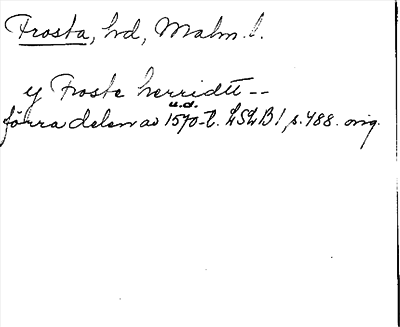 Frosta, hd, Malm. l.
y Froste herridtt --
u.d.
förra delen av 1570-t. LSLB1, s. 488. orig.